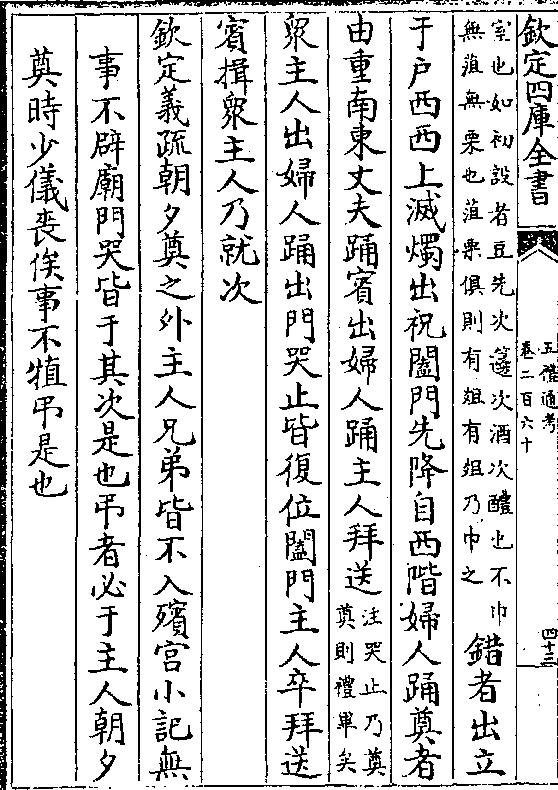 欽定四庫全書
五禮通考
卷二百六十
四十三
室也如初設者豆先次籩次酒次醴也不巾
無菹無栗也菹栗俱則有俎有俎乃巾之
錯者出立
于戶西西上滅燭出祝闔門先降自西階婦人踊奠者
由重南東丈夫踊賓出婦人踊主人拜送
注哭止乃奠
奠則禮畢矣
衆主人出婦人踊出門哭止皆復位闔門主人卒拜送
賓揖衆主人乃就次
欽定義疏朝夕奠之外主人兄弟皆不入殯宮小記無
事不辟廟門哭皆于其次是也弔者必于主人朝夕
奠時少儀喪俟事不犆弔是也